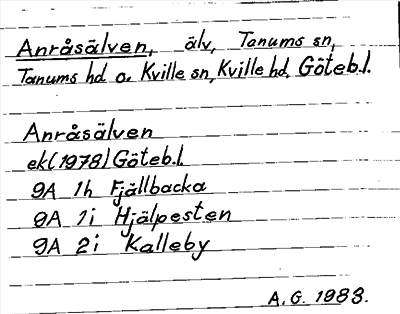 Anråsälven, älv, Tanums sn,
Tanums hd o. Kville sn, Kville hd, Göteb.l.
Anråsälven
ek(1978) Göteb.l.
9A 1h Fjällbacka
9A 1i Hjälpesten
9A 2i Kalleby
A.G. 1983.